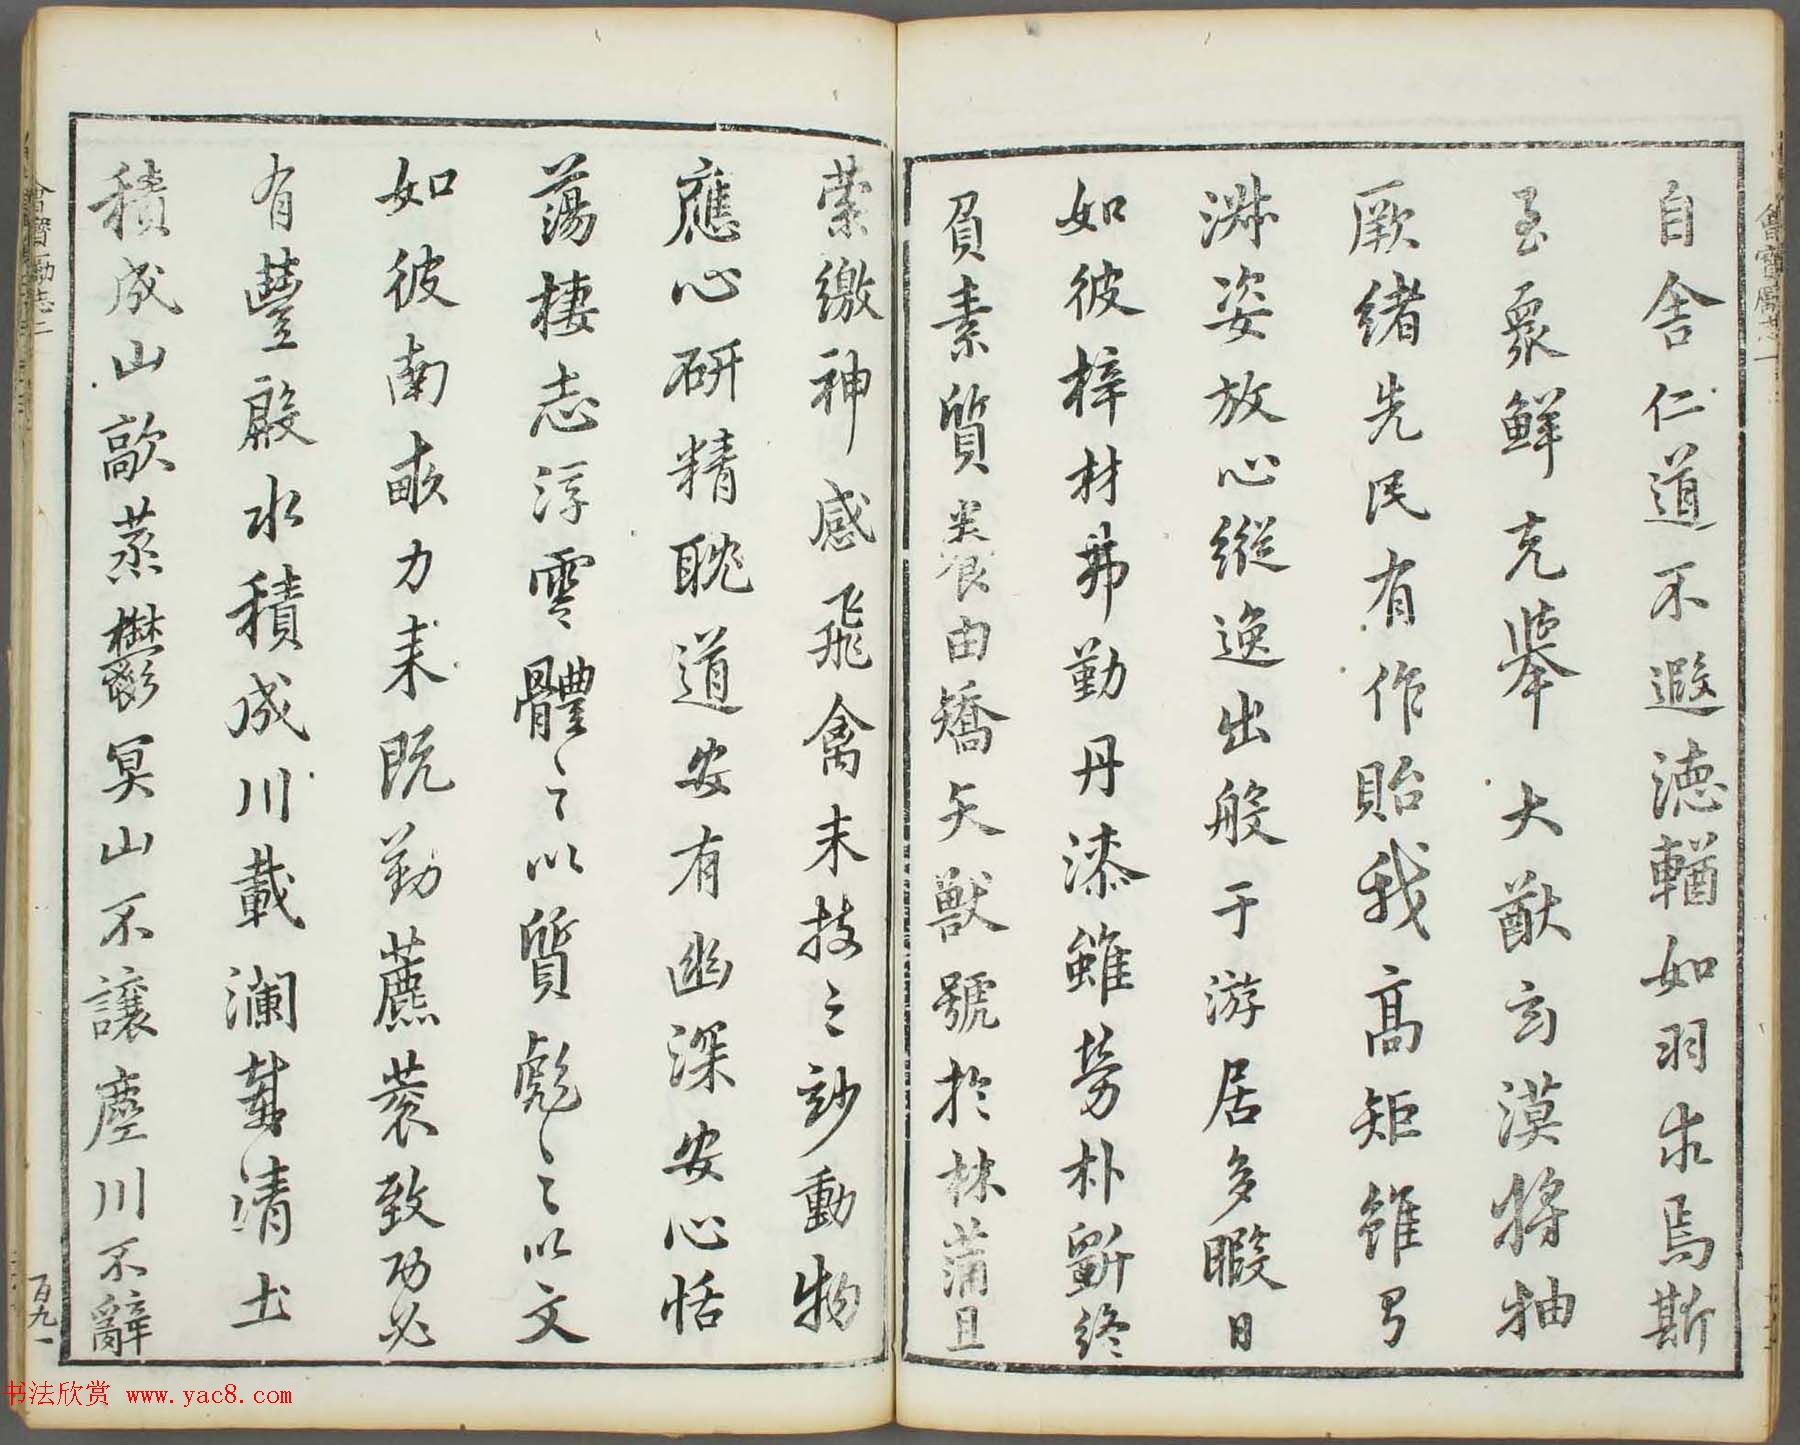 自舍仁道不遐德輶如羽求焉斯
至眾鮮克舉大猷玄漠將抽
厥緒先民有作貽我高矩雖
淑姿放心縱逸出般于游居多暇日
如彼梓材弗勤丹漆雖勞朴斲終
負素質養由矯矢獸號於林蒲且
縈繳神感飛禽末技之妙動物
應心研精耽道安有幽深安心恬
蕩棲志浮雲體之以質彪之以文
如彼南畝力耒既勤藨蓘致功必
有豐殷水積成川載瀾載清土
積成山歊蒸鬱冥山不讓塵川不辭
勵志二
百九一
书法欣赏 www.yac8.com